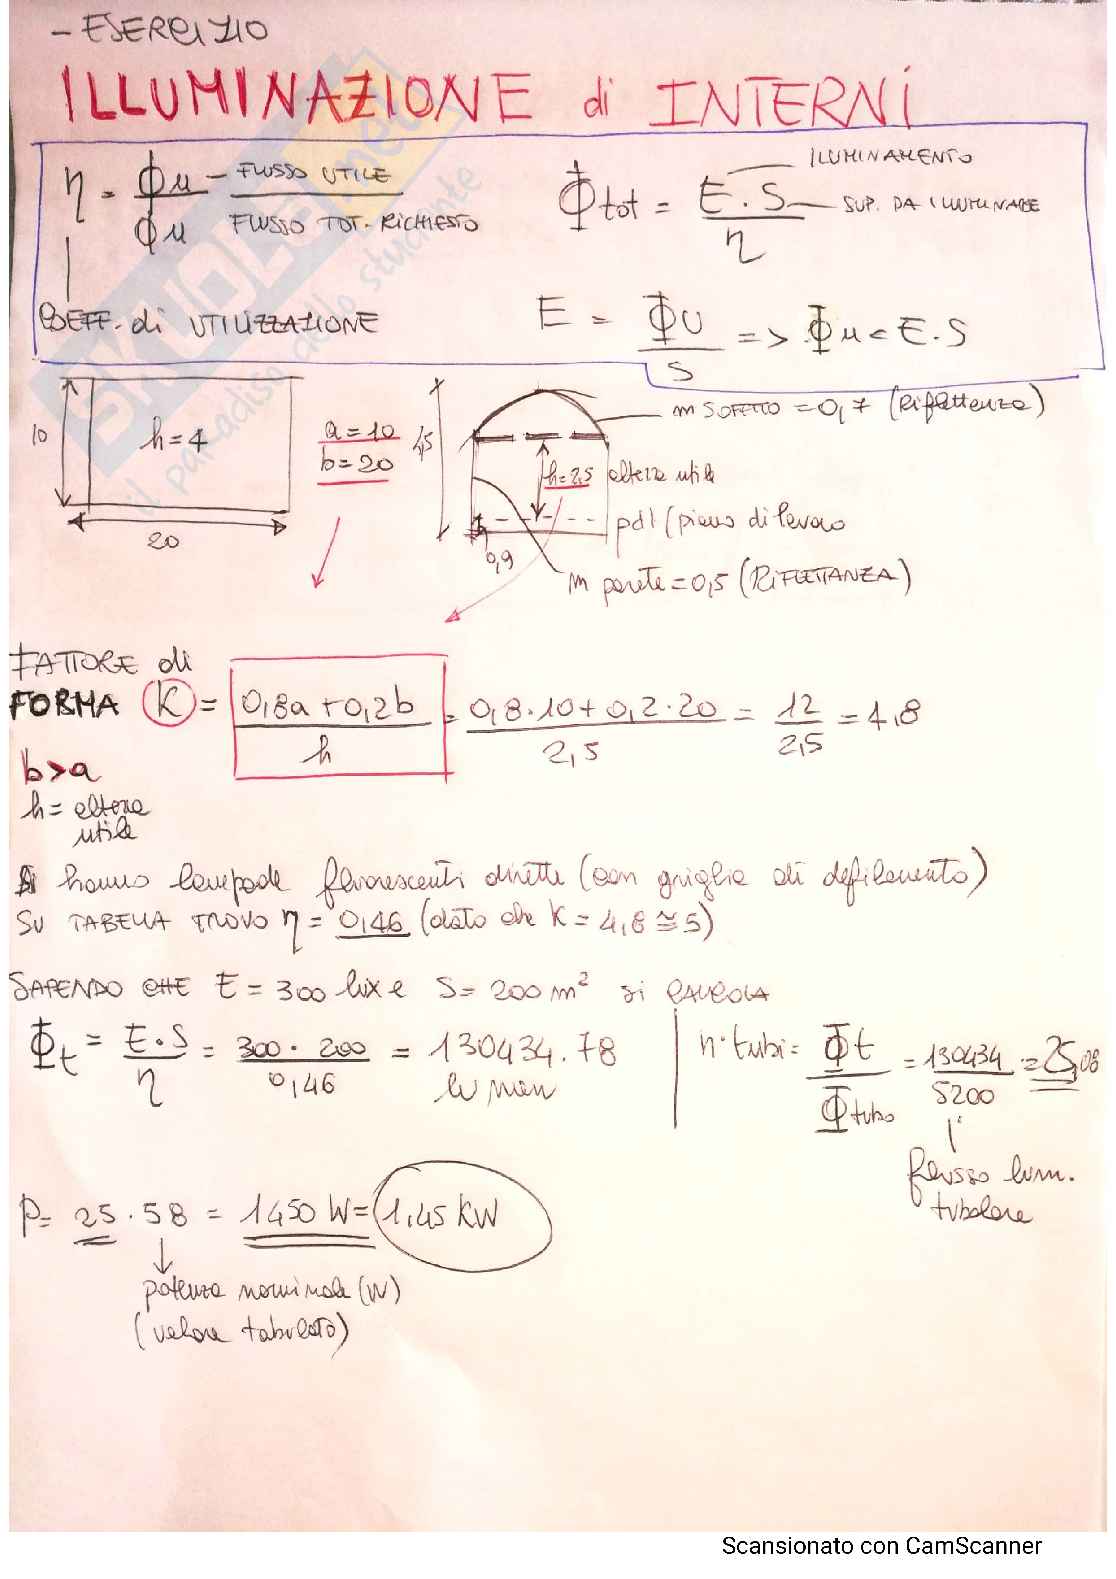 - ESERCIZIO
ILLUMINAZIONE di INTERNI
η = Φu - FLUSSO UTILE
Φu FLUSSO TOT. RICHIESTO
COEFF. di UTILIZZAZIONE
ILUMINAMENTO
Φtot = E . S SUP. DA ILLUMINARE
η
E = ΦU => Φu = E . S
S
10
h = 4
20
a = 10
b = 20
4,5
m SOFFITTO = 0,7 (Riflettenza)
h = 2,5 altezza utile
pdl (piano di lavoro
0,9
m parete = 0,5 (RIFLETTANZA)
FATTORE di
FORMA K = 0,8a + 0,2b = 0,8 · 10 + 0,2 · 20 = 12 = 4,8
h 2,5 2,5
b > a
h = altezza
utile
Si hanno lampade fluorescenti dirette (con griglia di defilamento)
SU TABELLA TROVO η = 0,46 (dato che K = 4,8 ≅ 5)
SAPENDO CHE E = 300 lux e S = 200 m² si CALCOLA
Φt = E . S = 300 · 200 = 130434.78
η 0,46 lumen
n° tubi = Φt = 130434 = 25,08
Φtubo 5200
flusso lum.
tubolare
P = 25 . 58 = 1450 W = 1,45 KW
potenza nominale (W)
(valore tabulato)
SKUOLA.net
il paradiso dello studente
Scansionato con CamScanner